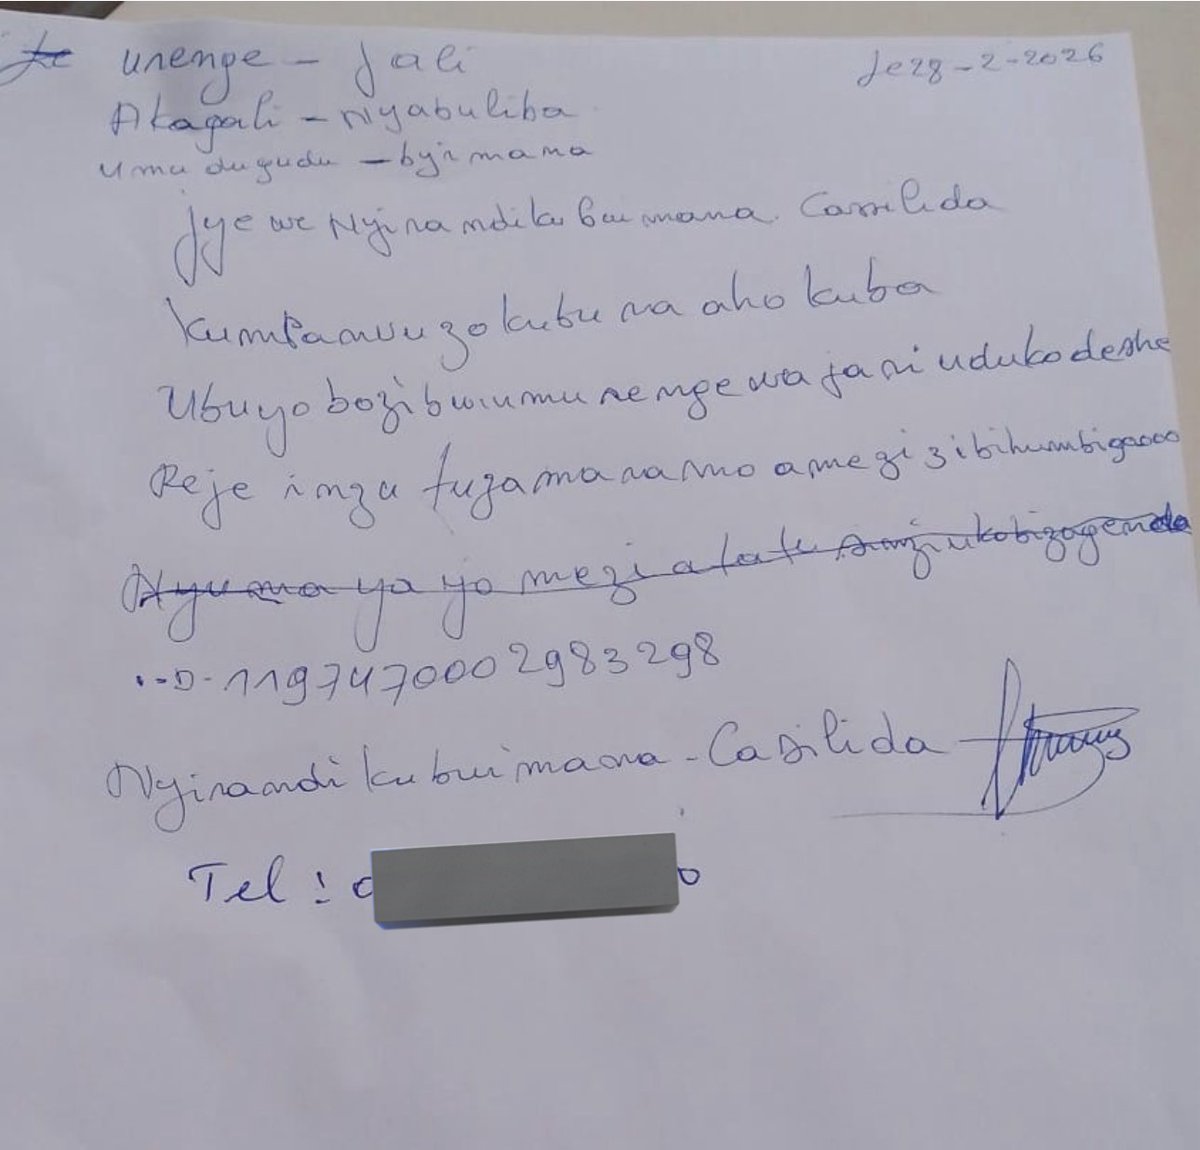 urenge - Jali Le 28-2-2026
Akagali - Nyabuliba
Umudugudu - byimana
Jyewe Nyirandikubwimana Cassilida
Kumpamvuzokubura aho kuba
Ubuyobozi bwumurengewa jari udukodeshe
Reje inzu tuzamaramo amezi 3 ibihumbi
Nyuma yayo mezi atatu sinzi uko bizagenda
I-D-1197470002983298
Nyirandikubwimana - Casilida
Tel :